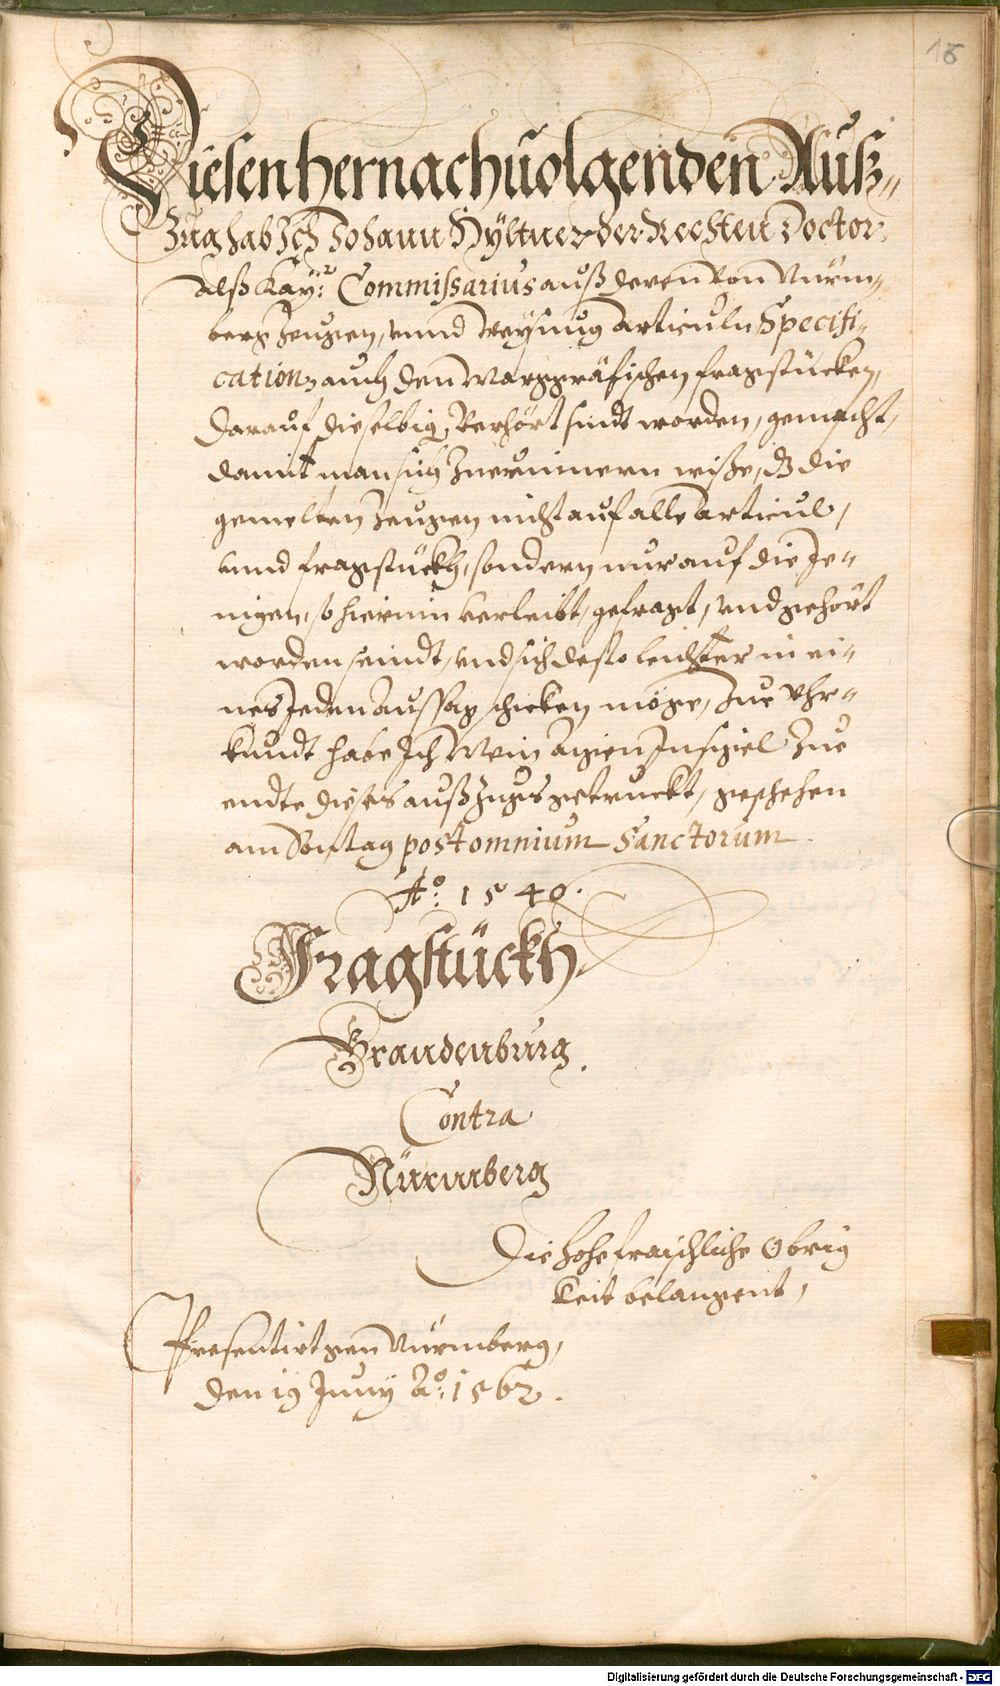 16
Diesen hernachuolgenden Auß„
Zug hab Ich Johann Hyltner der Rechten Doctor
Alß Kay: Commissarius auß deren von Nürm„
berg Zeugen, vnnd Weysung articuln Specifi„
cation, auch den Marggräfischen fragstücken,
darauf dieselbig Verhört sindt worden, gemacht,
damit man sich Zuerinnern wiße, dz die
gemelten Zeugen nicht auf alle articul,
vnnd fragstückh, sondern nur auf die Je„
nigen, so hierinn verleibt, gefragt, vnd gehört
worden seindt, vnd sich desto leichter in ei„
nes Jeden Aussag schicken möge, Zue Vhr„
kundt habe Ich Mein aigen Insigel Zue
endte dieses außzugs getruckt, geschehen
am Sontag post omnium Sanctorum
Ao: 1540.
Fragstückh
Brandenburg.
Contra
Nürmberg
Die hohe fraischliche Obrig
keit belangent,
Presentirt gen Nürmberg,
den 19 Juny Ao: 1562.
Digitalisierung gefördert durch die Deutsche Forschungsgemeinschaft - DFG